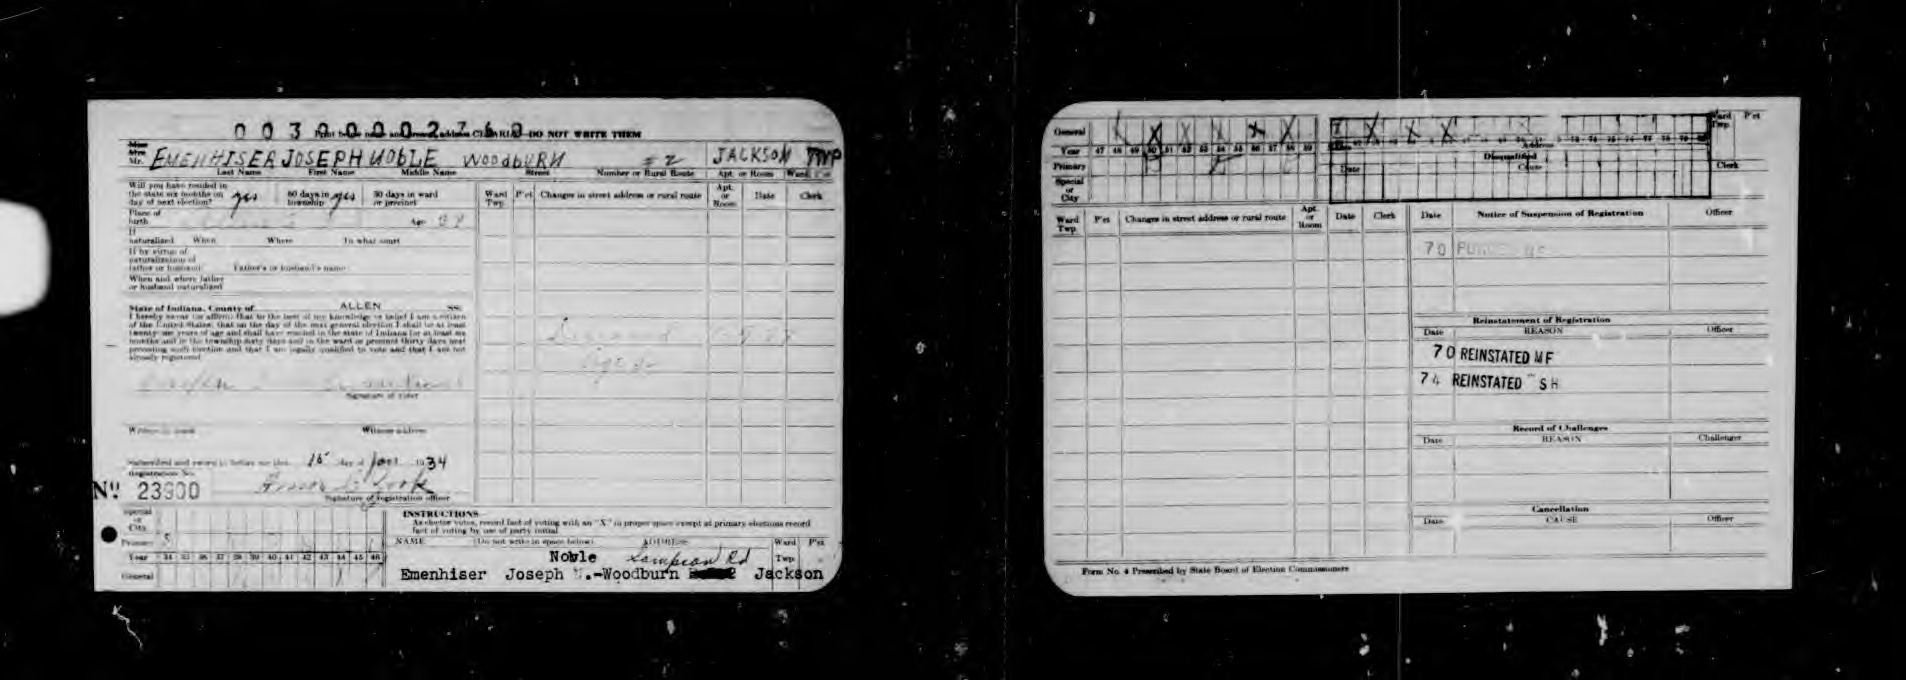 003900002760
DO NOT WRITE THEM
Mr. EMENHISER JOSEPH NOBLE WOODBURN #2 JACKSON TWP
Last Name First Name Middle Name Street Number or Rural Route Apt. or Room Ward
Will you have resided in
the state six months on
day of next election? yes
60 days in
township yes
30 days in ward
or precinct
Place of
birth Age
If
naturalized When Where In what court
If by virtue of
naturalization of
father or husband Father's or husband's name
When and where father
or husband naturalized
State of Indiana, County of ALLEN SS:
I hereby swear (or affirm) that to the best of my knowledge or belief I am a citizen
of the United States; that on the day of the next general election I shall be at least
twenty-one years of age and shall have resided in the state of Indiana for at least six
months and in the township sixty days and in the ward or precinct thirty days next
preceding such election and that I am legally qualified to vote and that I am not
already registered.
Signature of voter
Witness address
Subscribed and sworn to before me this 15 day of 1934
Registration No.
No 23900
Signature of registration officer
Ward Twp. P'ct Changes in street address or rural route Apt. or Room Date Clerk
Special
or
City
Primary S
Year 34 35 36 37 38 39 40 41 42 43 44 45 46
General
INSTRUCTIONS
As elector votes, record fact of voting with an "X" in proper space except at primary elections record
fact of voting by use of party initial
NAME (Do not write in space below) ADDRESS Ward P'ct
Noble Twp.
Emenhiser Joseph N.-Woodburn Jackson
General X X X X X X
Year 47 48 49 50 51 52 53 54 55 56 57 58 59
Primary
Special
or
City
Address
Disqualified
Date Cause
Ward
Twp. P'ct
Clerk
Ward Twp. P'ct Changes in street address or rural route Apt. or Room Date Clerk
Date Notice of Suspension of Registration Officer
70
Reinstatement of Registration
Date REASON Officer
70 REINSTATED MF
74 REINSTATED SH
Record of Challenges
Date REASON Challenger
Cancellation
Date CAUSE Officer
Form No. 4 Prescribed by State Board of Election Commissioners